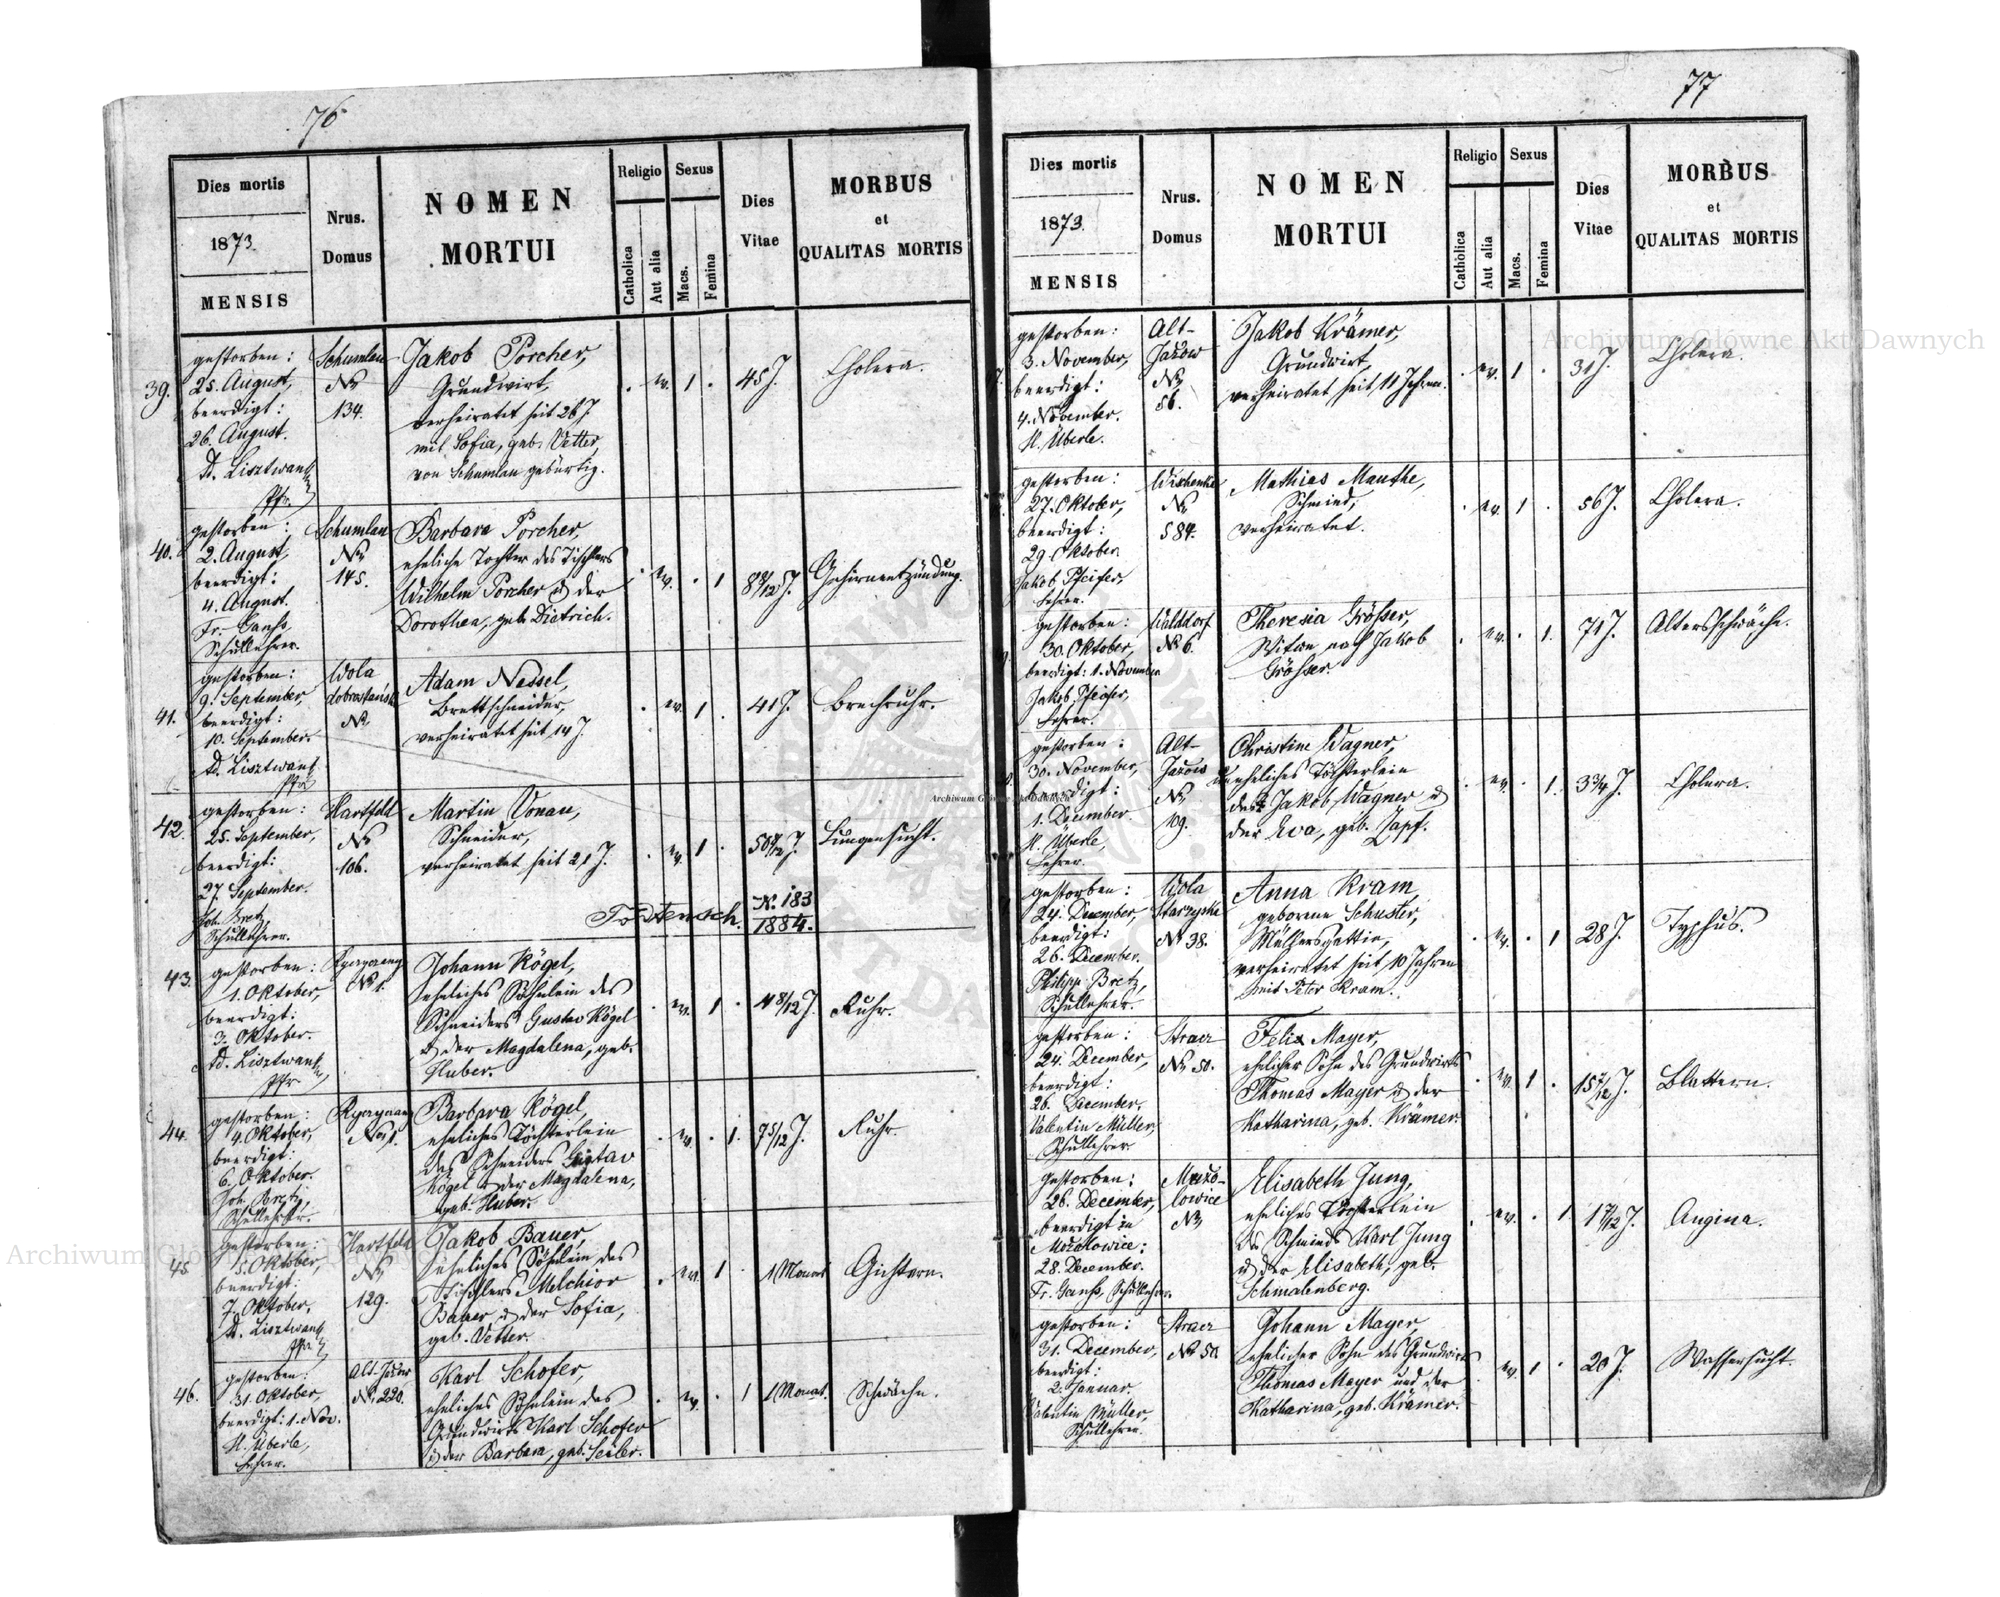 76
Dies mortis
1873.
MENSIS
Nrus.
Domus
NOMEN
MORTUI
Religio
Catholica
Aut alia
Sexus
Macs.
Femina
Dies
Vitae
MORBUS
et
QUALITAS MORTIS
39.
gestorben:
25. August,
beerdigt:
26. August.
Pfr.
Schumlau
No
134.
Jakob Porcher,
Grundwirt,
verheiratet seit 26 J.
mit Sofia, geb. Vetter,
von Schumlau gebürtig.
ev. 1
45 J.
Cholera.
40.
gestorben:
2. August,
beerdigt:
4. August.
Fr. Ganss,
Schullehrer.
Schumlau
No
145.
Barbara Porcher,
eheliche Tochter des Tischlers
Wilhelm Porcher u der
Dorothea, geb. Dietrich.
ev. 1
Gehirnentzündung.
41.
gestorben:
9. September,
beerdigt:
10. September.
Pfr
Wola
dobrostańska
No
Adam Nessel,
Brettschneider,
verheiratet seit 14 J.
ev. 1
41 J.
Brechruhr.
42.
gestorben:
25. September,
beerdigt:
27. September.
Joh. Bretz,
Schullehrer.
Hartfeld
No
106.
Martin Vonau,
Schneider,
verheiratet seit 21 J.
ev. 1
Lungensucht.
Todtensch.
N. 183
1884.
43.
gestorben:
1. Oktober,
beerdigt:
3. Oktober.
Pfr
No 1.
Johann Kögel,
eheliches Söhnlein des
Schneiders Gustav Kögel
u der Magdalena, geb.
Huber.
ev. 1
4 8/12 J.
Ruhr.
44.
gestorben:
4. Oktober,
beerdigt:
6. Oktober.
Joh. Bretz,
Schullehrer.
No 1.
Barbara Kögel,
eheliches Töchterlein
des Schneiders Gustav
Kögel u der Magdalena,
geb. Huber.
ev. 1.
7 5/12 J.
Ruhr.
45.
gestorben:
5. Oktober,
beerdigt:
7. Oktober.
Pfr
Hartfeld
No
129.
Jakob Bauer,
eheliches Söhnlein des
Tischlers Melchior
Bauer u der Sofia,
geb. Vetter.
ev. 1
1 Monat
Gichtern.
46.
gestorben:
31. Oktober,
beerdigt: 1. Nov.
H. Überle,
Lehrer.
Alt-Jażow
No 220.
Karl Schofer,
eheliches Söhnlein des
Grundwirts Karl Schofer
u der Barbara, geb. Seiler.
ev. 1
1 Monat.
Schwäche.
77
Dies mortis
1873.
MENSIS
Nrus.
Domus
NOMEN
MORTUI
Religio
Catholica
Aut alia
Sexus
Macs.
Femina
Dies
Vitae
MORBUS
et
QUALITAS MORTIS
gestorben:
3. November,
beerdigt:
4. November.
H. Überle.
Alt-
Jażow
No
56.
Jakob Krämer,
Grundwirt,
verheiratet seit 11 Jahren.
ev. 1
31 J.
Cholera.
gestorben:
27. Oktober,
beerdigt:
29. Oktober.
Jakob Pfeifer,
Lehrer.
Wischenka
No
584.
Mathias Mauthe,
Schmied,
verheiratet.
ev. 1
56 J.
Cholera.
gestorben:
30. Oktober,
beerdigt: 1. November
Jakob Pfeifer,
Lehrer.
Walddorf
No 6.
Theresia Grösser,
Witwe nach Jakob
Grösser.
ev. 1.
71 J.
Altersschwäche.
gestorben:
30. November,
beerdigt:
1. Dezember.
H. Überle,
Lehrer.
Alt-
Jażow
No
109.
Christine Wagner,
uneheliches Töchterlein
des Jakob Wagner u
der Eva, geb. Zapf.
ev. 1.
3 3/4 J.
Cholera.
gestorben:
24. December,
beerdigt:
26. December.
Philipp Bretz,
Schullehrer.
Wola
Starzyska
No 38.
Anna Kram,
geborene Schuster,
Müllersgattin,
verheiratet seit 10 Jahren
mit Peter Kram.
ev. 1
28 J.
Typhus.
gestorben:
24. December,
beerdigt:
26. December.
Valentin Müller,
Schullehrer.
Stracz
No 50.
Felix Mayer,
ehelicher Sohn des Grundwirts
Thomas Mayer u der
Katharina, geb. Krämer.
ev. 1
Blattern.
gestorben:
26. December,
beerdigt in
Mużołowice:
28. December.
Fr. Ganss, Schullehrer.
Mużo-
lowice
No
Elisabeth Jung,
eheliches Töchterlein
des Schmieds Karl Jung
u der Elisabeth, geb.
Schmalenberg.
ev. 1
Angina.
gestorben:
31. December,
beerdigt:
2. Januar.
Valentin Müller,
Schullehrer.
Stracz
No 50
Johann Mayer,
ehelicher Sohn des Grundwirts
Thomas Mayer und der
Katharina, geb. Krämer.
ev. 1
20 J.
Wassersucht.
Archiwum Główne Akt Dawnych
Archiwum Główne Akt Dawnych
Archiwum Główne Akt Dawnych